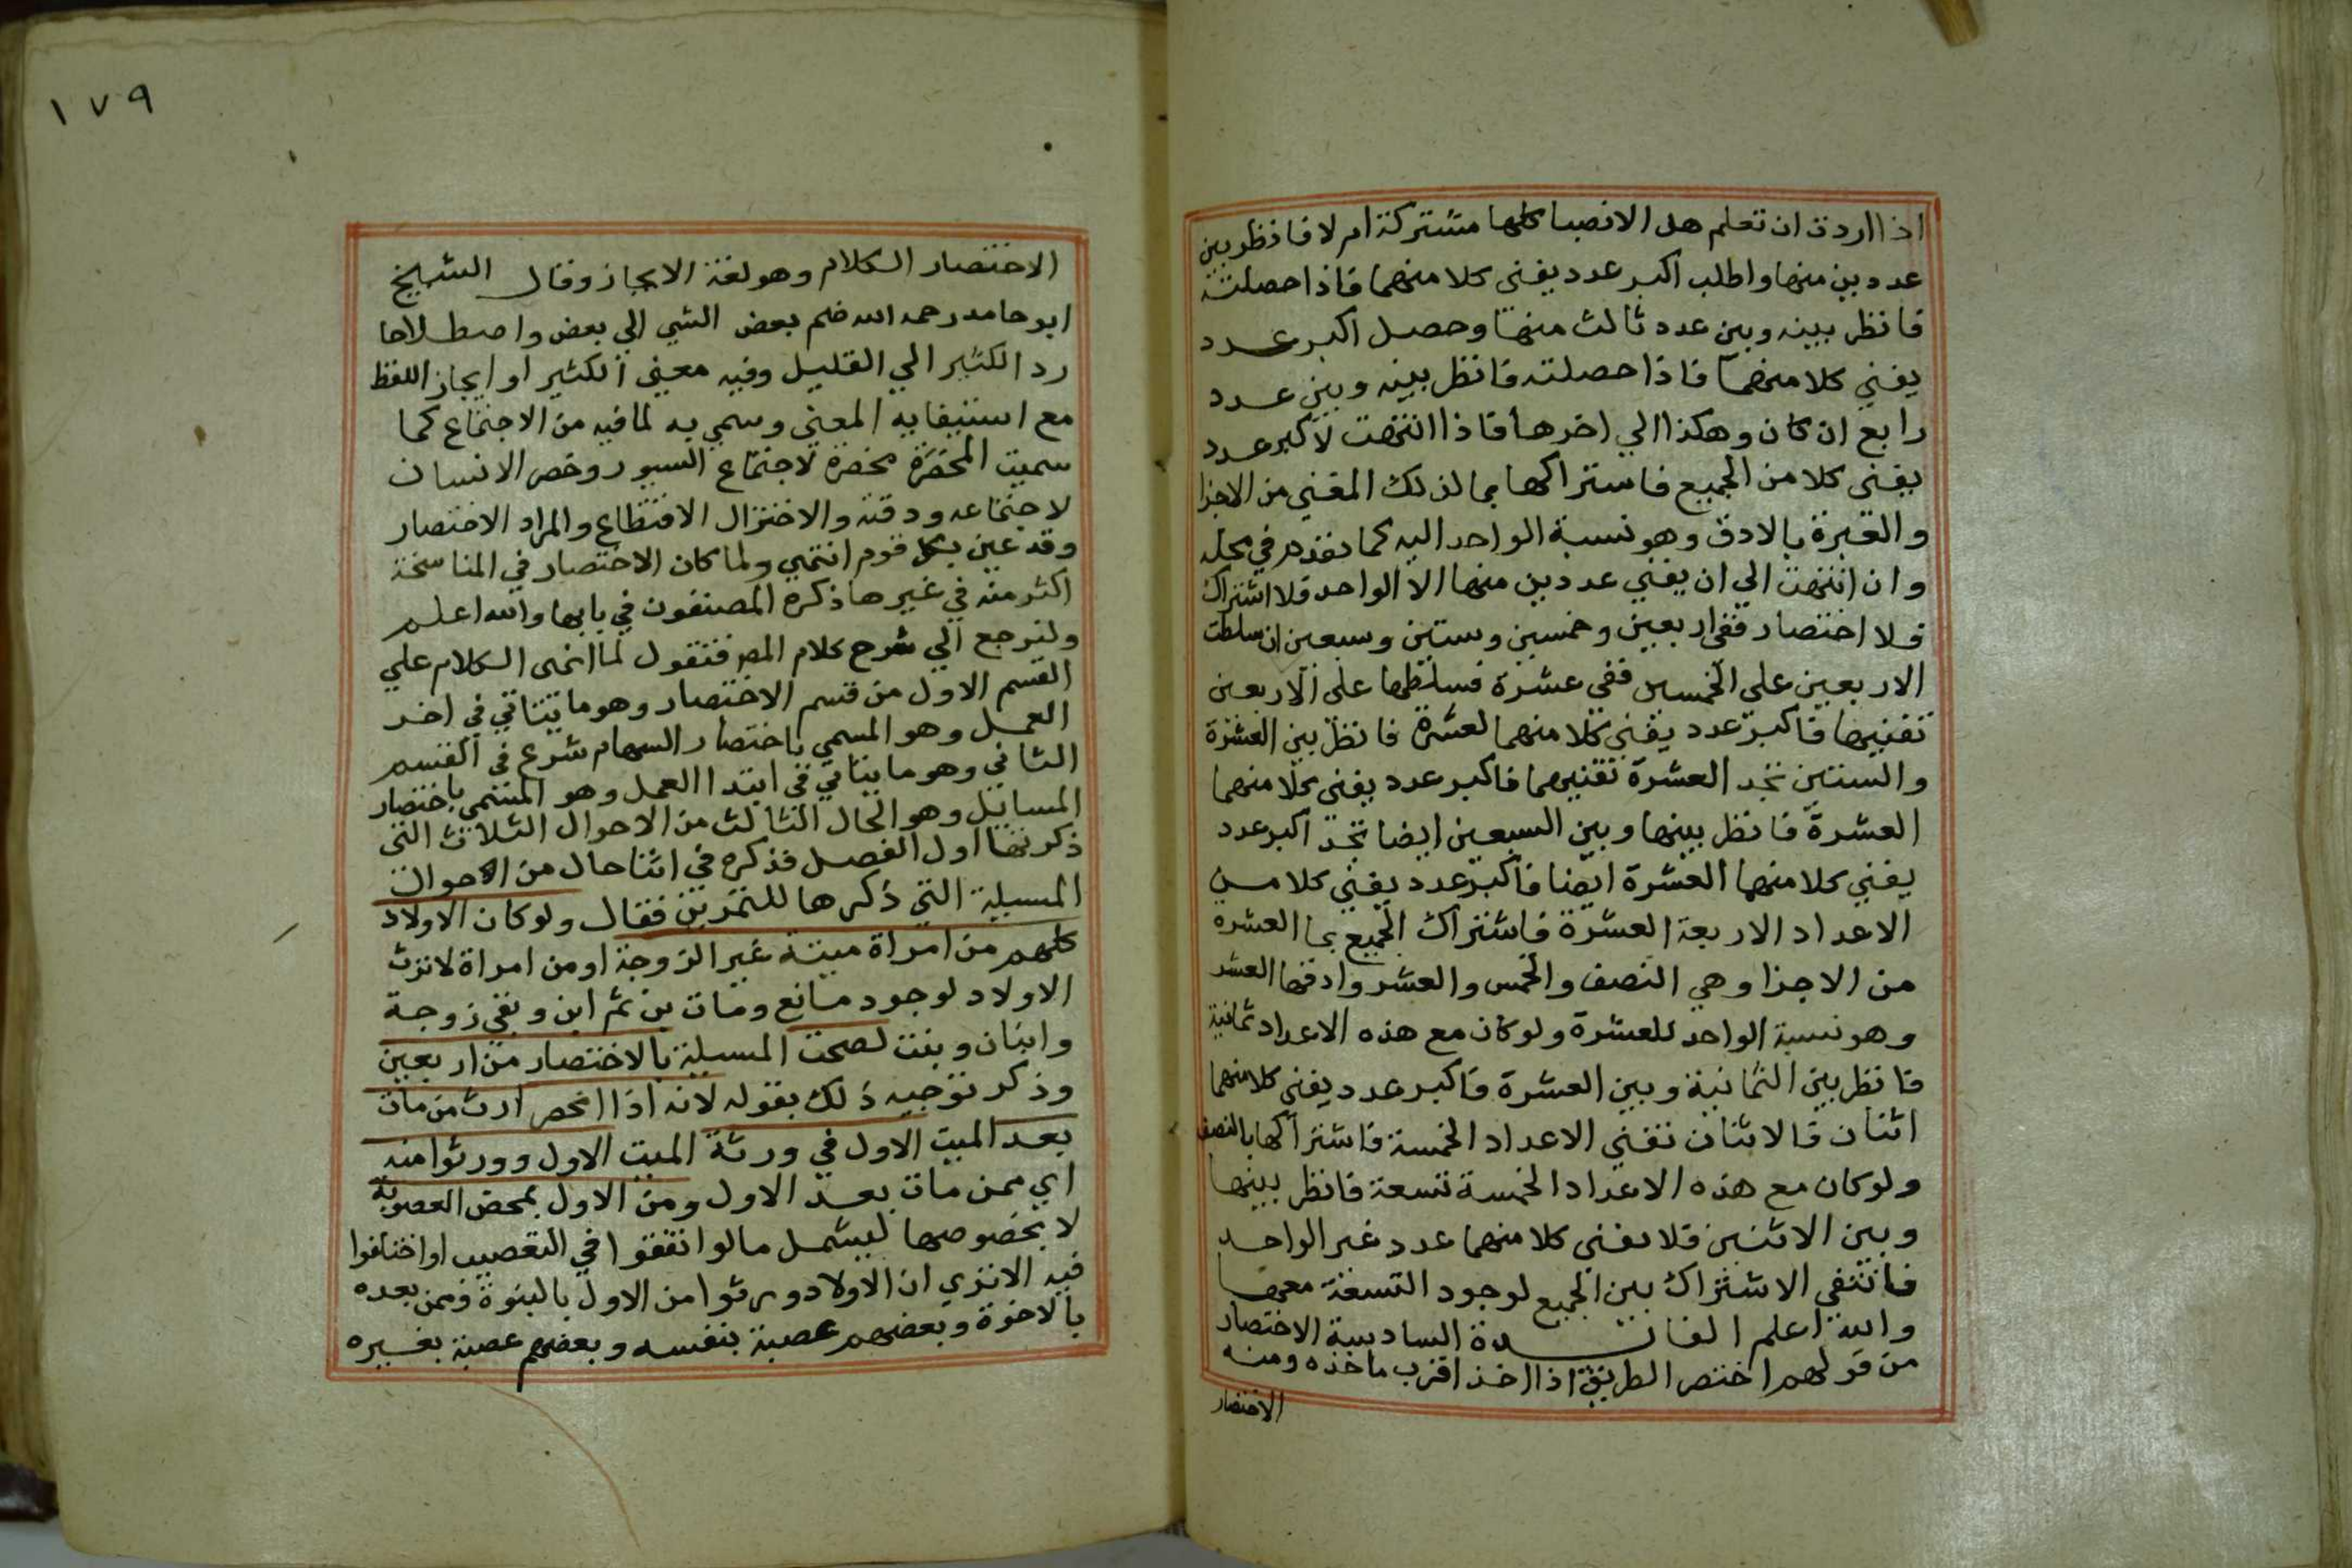 اذا اردت ان تعلم هل الانصبا كلها مشتركة ام لا فانظر بين
عددين منها واطلب اكبر عدد يفنى كلا منهما فاذا حصلته
فانظر بينه وبين عدد ثالث منها وحصل اكبر عدد
يفني كلا منهما فاذا حصلته فانظر بينه وبين عدد
رابع ان كان وهكذا الي اخرها فاذا انتهت لاكبر عدد
يفنى كلا من الجميع فاشتراكها بما لذلك المفني من الاجزا
والعبرة بالادق وهو نسبة الواحد اليه كما تقدم في محله
وان انتهت الي ان يفني عددين منها الا الواحد فلا اشتراك
ولا اختصار ففي اربعين وخمسين وستين وسبعين ان سلطت
الاربعين علي الخمسين ففي عشرة فسلطها على الاربعين
تفنيها فاكبر عدد يفنى كلا منهما العشرة فانظر بين العشرة
والستين تجد العشرة تفنيهما فاكبر عدد يفنى كلا منهما
العشرة فانظر بينها وبين السبعين ايضا تجد اكبر عدد
يفني كلا منهما العشرة ايضا فاكبر عدد يفني كلا من
الاعداد الاربعة العشرة فاشتراك الجميع بما العشرة
من الاجزا وهي النصف والخمس والعشر وادقها العشر
وهو نسبة الواحد للعشرة ولو كان مع هذه الاعداد ثمانية
فانظر بين الثمانية وبين العشرة فاكبر عدد يفني كلا منهما
اثنان فالاثنان تفني الاعداد الخمسة فاشتراكها بالنصف
ولو كان مع هذه الاعداد الخمسة تسعة فانظر بينها
وبين الاثنين فلا يفني كلا منهما عدد غير الواحد
فانتفى الاشتراك بين الجميع لوجود التسعة معها
والله اعلم الفائدة السادسة الاختصار
من قولهم اختصر الطريق اذا اخذ اقرب ماخذه ومنه
الاختصار
١٧٩
الاختصار الكلام وهو لغة الايجاز وقال الشيخ
ابو حامد رحمه الله ضم بعض الشي الي بعض واصطلاحا
رد الكثير الي القليل وفيه معني الكثير او ايجاز اللفظ
مع استيفايه المعني وسمي به لما فيه من الاجتماع كما
سميت المخصرة مخصرة لاجتماع السيور وخصر الانسان
لاجتماعه ودقته والاختزال الاقتطاع والمراد الاختصار
وقد عين بكل قوم انتهي ولما كان الاختصار في المناسخة
اكثر منه في غيرها ذكره المصنفون في بابها والله اعلم
ولنرجع الي شرح كلام المص فنقول لما انهى الكلام علي
القسم الاول من قسم الاختصار وهو ما يتاتي في اخر
العمل وهو المسمي باختصار السهام شرع في القسم
الثاني وهو ما يتاتي في ابتدا العمل وهو المسمي باختصار
المسايل وهو الحال الثالث من الاحوال الثلاث التي
ذكرتها اول الفصل فذكره في اثنا حال من الاحوال
المسيلة التي ذكرها للتمرين فقال ولو كان الاولاد
كلهم من امراة ميتة غير الزوجة او من امراة لا ترث
الاولاد لوجود مانع ومات بن ثم ابن وبقي زوجة
وابنان وبنت لصحت المسيلة بالاختصار من اربعين
وذكر توجيه ذلك بقوله لانه اذا انحصر ارث من مات
بعد الميت الاول في ورثة الميت الاول وورثوا منه
اي ممن مات بعد الاول ومن الاول بمحض العصوبة
لا بخصوصها ليشمل ما لو اتفقوا في التعصيب او اختلفوا
فيه الا تري ان الاولاد ورثوا من الاول بالبنوة وممن بعده
بالاخوة وبعضهم عصبة بنفسه وبعضهم عصبة بغيره